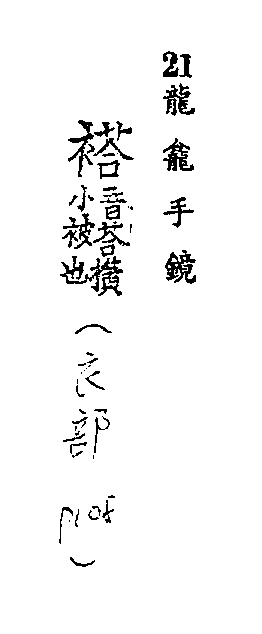 21 龍龕手鏡
褡 音荅攢小被也（衣部